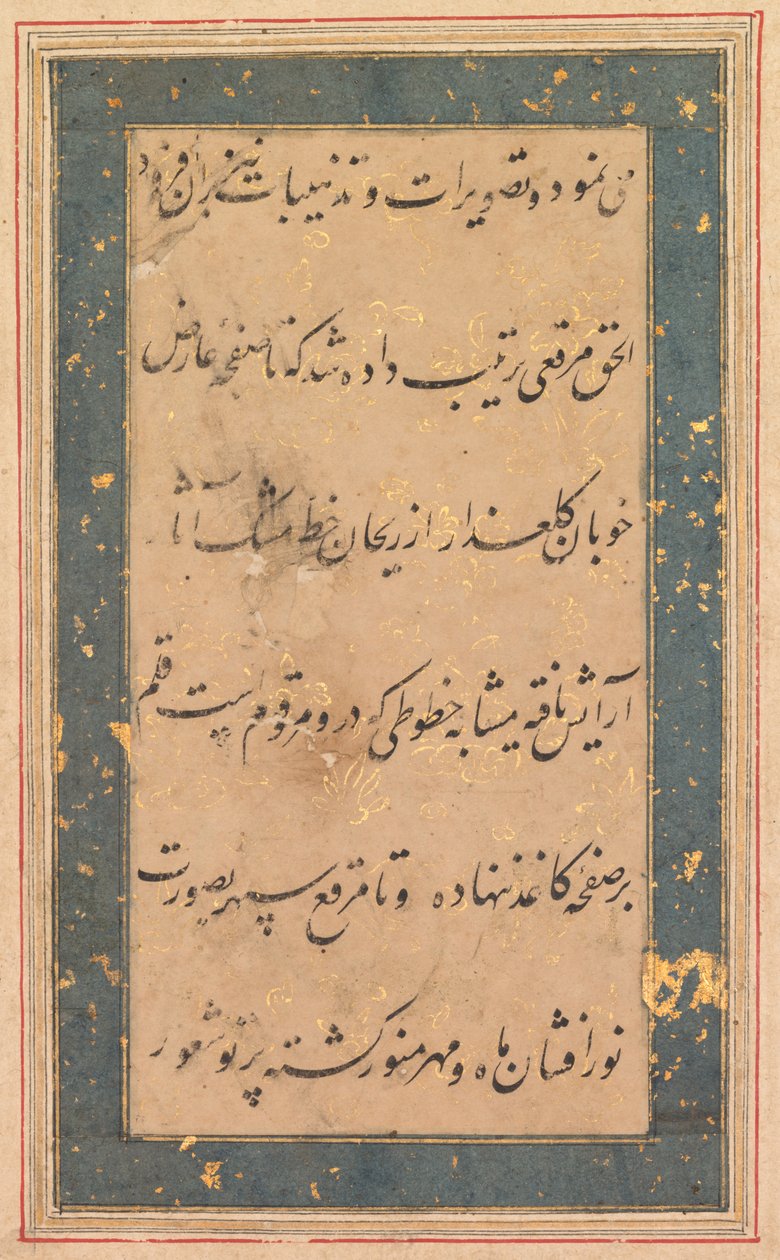 می نمود و تصویرات و تذهیبات نیز بران افزود
الحق مرقعی ترتیب داده شد که تا صفحهٔ عارض
خوبان گلعذار از ریحان خط مشک آثار
آرایش یافته مشابه خطوطی که در و مرقوم است قلم
بر صفحهٔ کاغذ نهاده و تا مرقع سپهر بصورت
نور افشان ماه و مهر منور گشته پرتو شعور